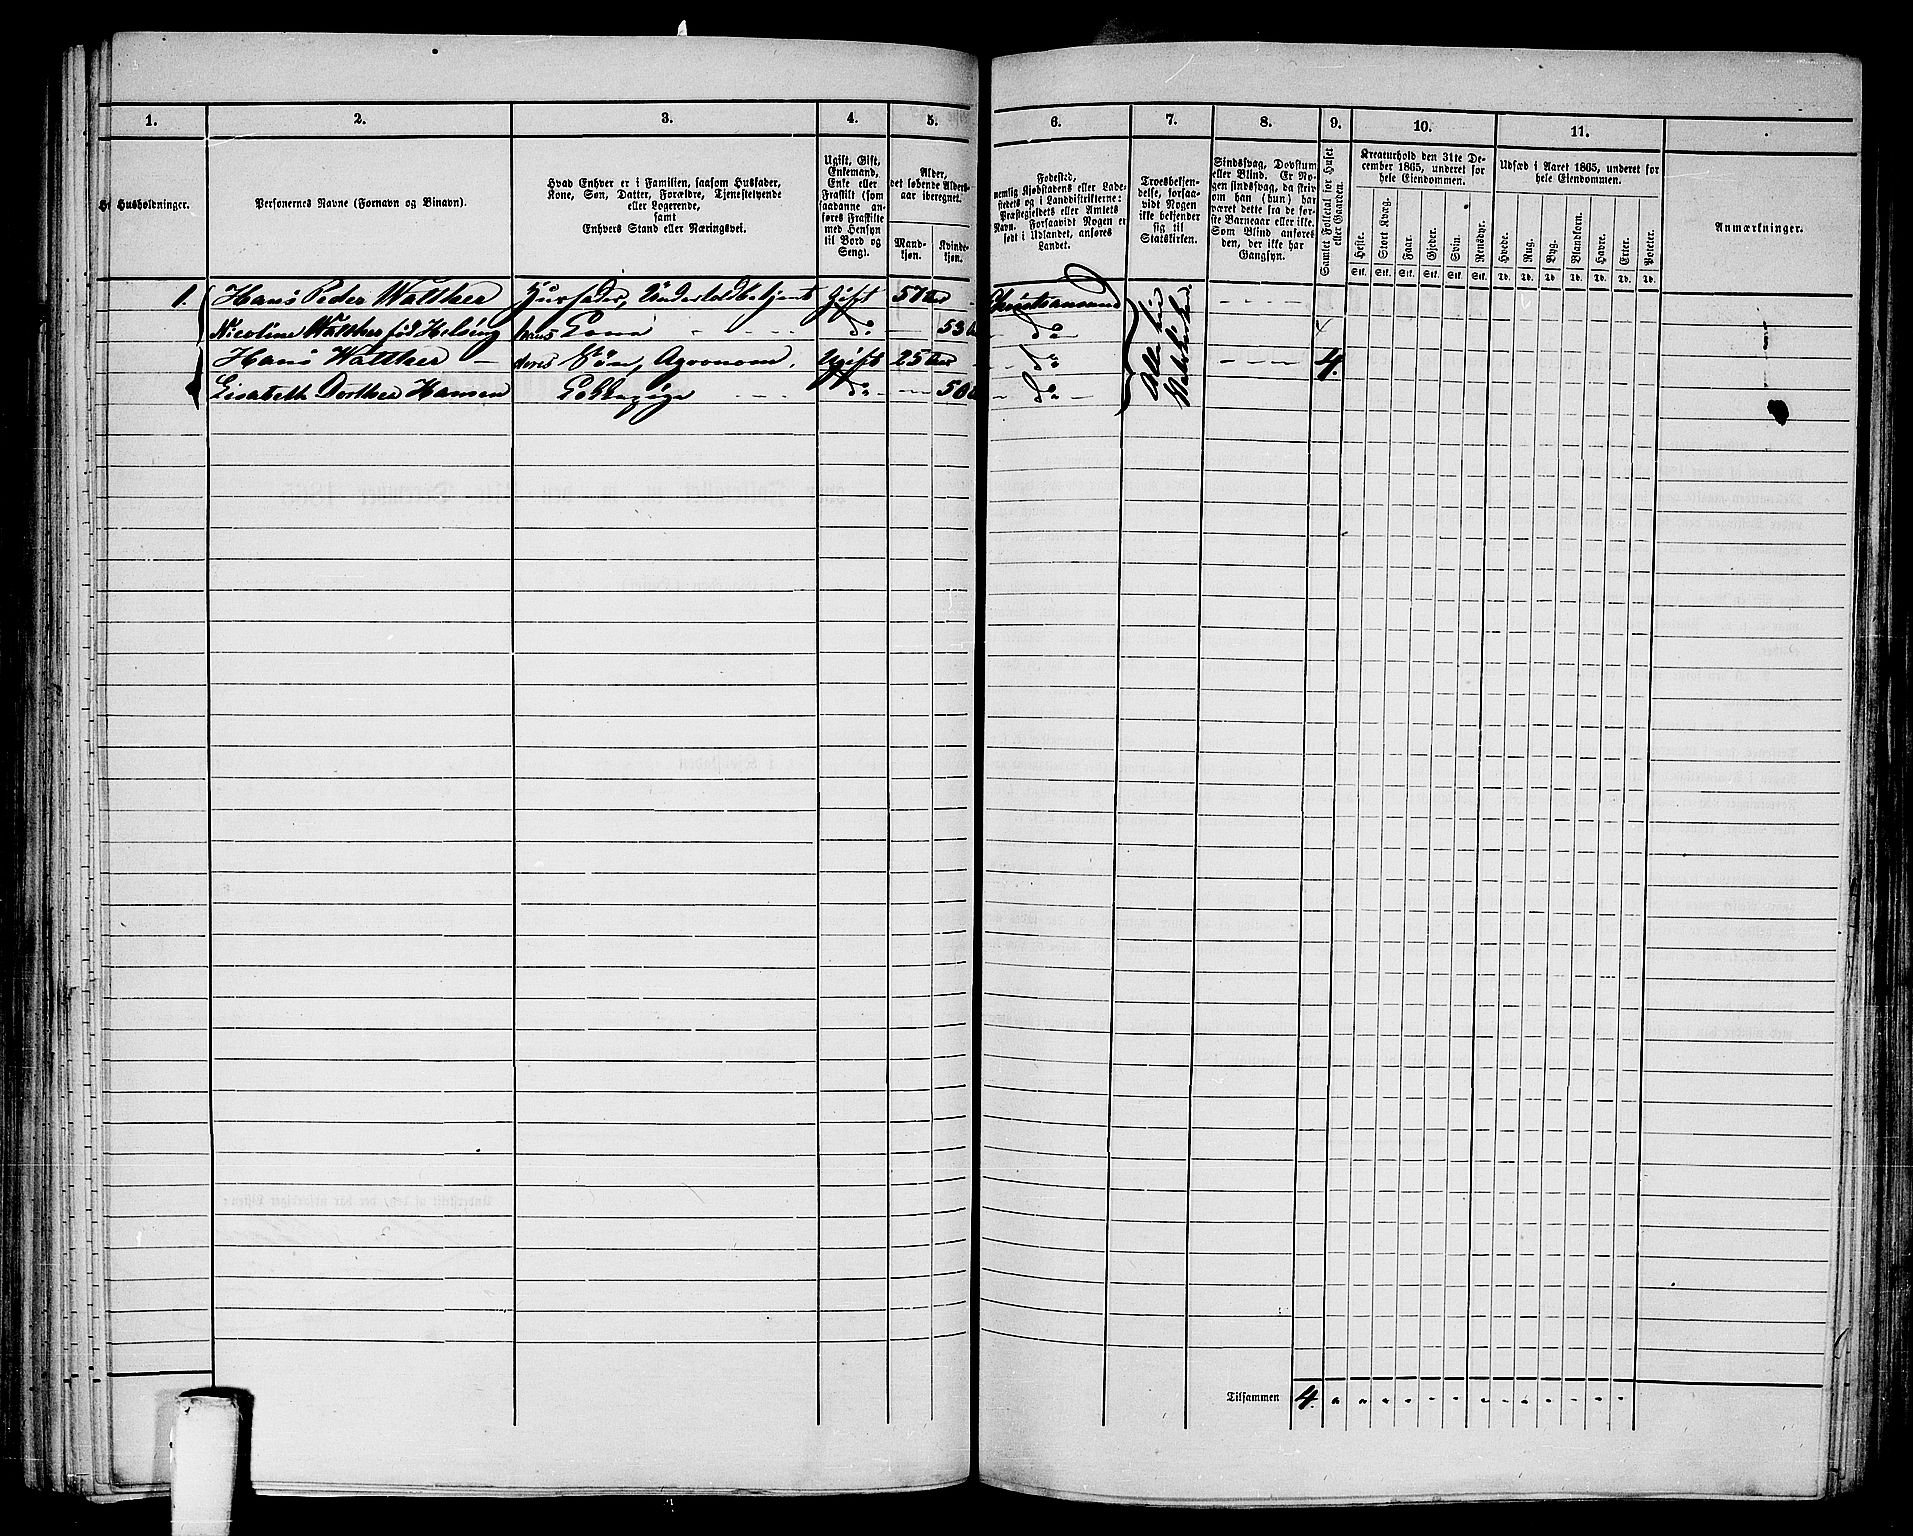 1. 2. 3. 4. 5. 6. 7. 8. 9. 10. 11.
Husholdninger.
Personernes Navne (Fornavn og Binavn).
Hvad Enhver er i Familien, saasom Husfader,
Kone, Søn, Datter, Forældre, Tjenestetyende
eller Logerende,
samt
Enhvers Stand eller Næringsvei.
Ugift, Gift,
Enkemand,
Enke eller
Fraskilt (som
saadanne an-
føres Fraskilte
med Hensyn
til Bord og
Seng).
Alder,
det løbende Alders-
aar iberegnet.
Mand-
kjøn.
Kvinde-
kjøn.
Fødested,
nemlig Kjøbstadens eller Lade-
stedets og i Landdistrikterne:
Præstegjeldets eller Amtets
Navn. Forsaavidt Nogen er
født i Udlandet, anføres
Landet.
Troesbekjen-
delse, forsaa-
vidt Nogen
ikke bekjender
sig til
Statskirken.
Sindssvag, Døvstum
eller Blind. Er No-
gen sindssvag, da skriv
om han (hun) har
været dette fra de før-
ste Barneaar eller ikke.
Som Blind anføres
den, der ikke har
Gangsyn.
Samlet Folketal for Huset
eller Gaarden.
Kreaturhold den 31te De-
cember 1865, underet for
hele Eiendommen.
Heste. Stort Kvæg. Faar. Gjeder. Svin. Rensdyr.
Stk. Stk. Stk. Stk. Stk. Stk.
Udsæd i Aaret 1865, underet for
hele Eiendommen.
Hvede. Rug. Byg. Blandkorn. Havre. Erter. Poteter.
Td. Td. Td. Td. Td. Td. Td.
Anmærkninger.
1. Hans Peder Walther Huusfader, Undertoldbetjent Gift 57 Aar Christiansund
Nicoline Walther fød Helsing hans Kone do 53 do
Hans Walther deres Søn, Agronom. Ugift 25 Aar do 4.
Lisabeth Dorthea Hansen Kokkepige do 50 do
Alle til
Statskirken.
Tilsammen 4.